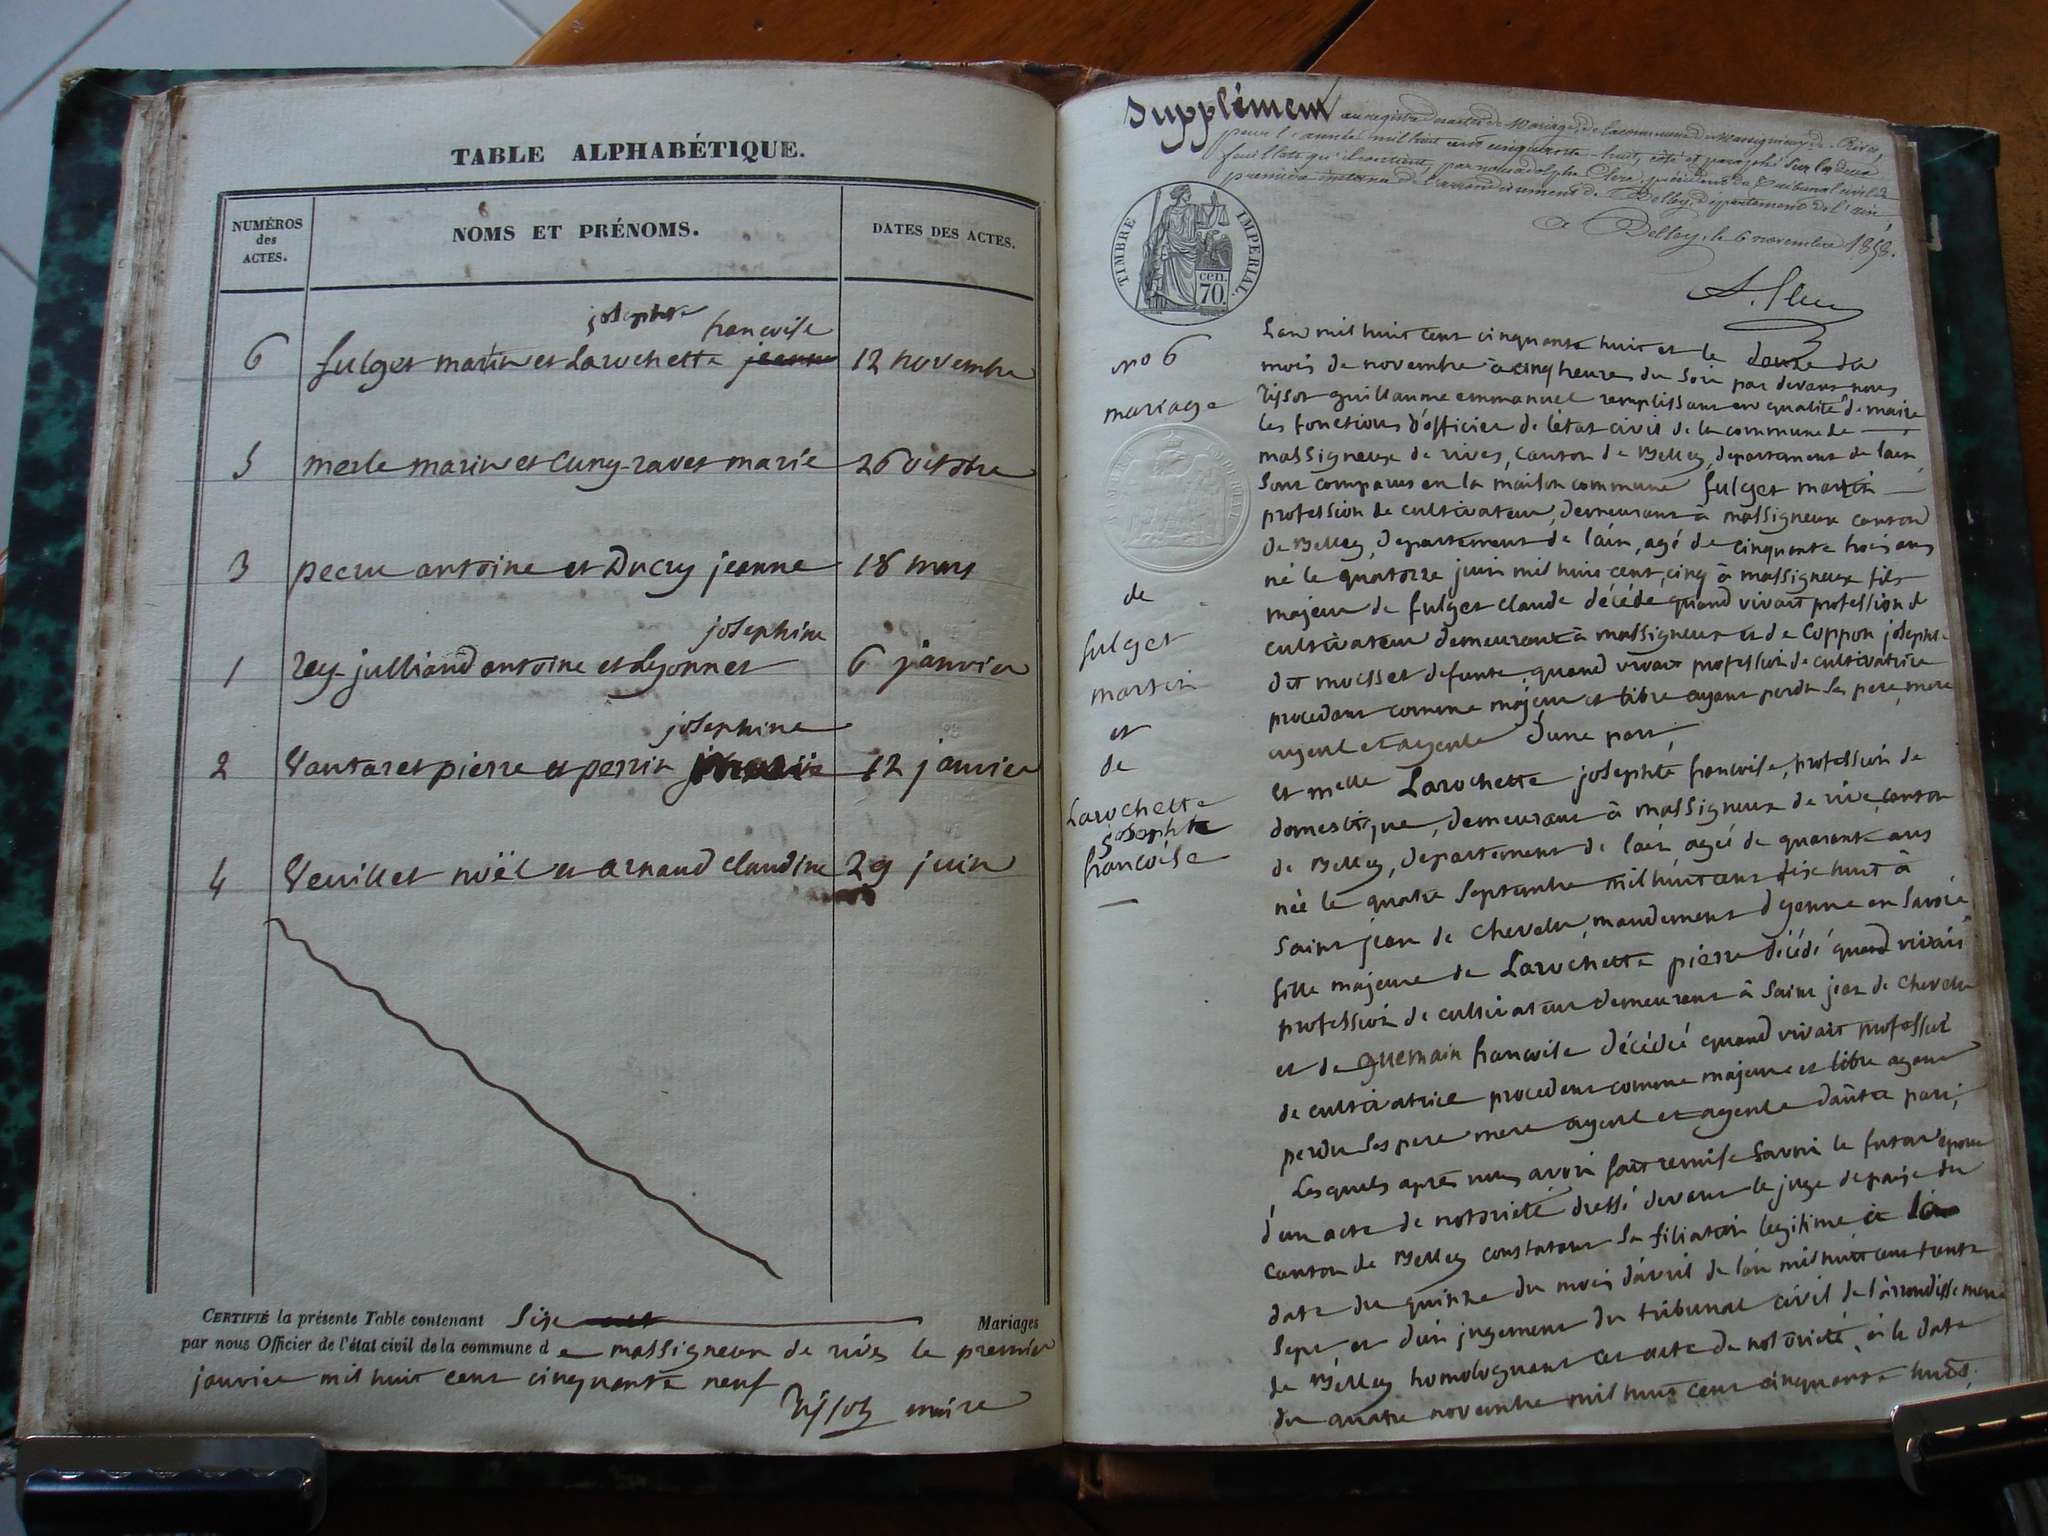 TABLE ALPHABÉTIQUE.
NUMÉROS
des
ACTES.
NOMS ET PRÉNOMS.
DATES DES ACTES.
josephte françoise
6 fulget martin et Larochette jeanne 12 novembre
5 merle marin et Cuny-ravet marie 26 octobre
3 pecru antoine et Ducry jeanne 18 mars
josephine
1 rey-julliand antoine et Lyonnet 6 janvier
josephine
2 Vantaret pierre et perrin 12 janvier
4 Veuillet noël et arnaud claudine 29 juin
CERTIFIÉ la présente Table contenant Six Mariages
par nous Officier de l'état civil de la commune de massigneux de rives le premier
janvier mil huit cent cinquante neuf
Tissot maire
Supplément au registre des actes de Mariage, de la commune de Massignieux-de-Rives,
pour l'année mil huit cent cinquante-huit, coté et paraphé sur les deux
feuillets qu'il contient, par nous adolphe Clerc, président du Tribunal civil de
première instance de l'arrondissement de Belley, département de l'ain,
a Belley, le 6 novembre 1858.
TIMBRE IMPERIAL.
70 cen.
no 6
mariage
de
fulget
martin
et
de
Larochette
josephte
françoise
Lan mil huit cent cinquante huit et le douze du
mois de novembre à cinq heures du soir par devant nous
Tissot guillaume emmanuel remplissant en qualité de maire
les fonctions d'officier de l'état civil de la commune de
massigneux de rives, canton de Belley, departement de l'ain,
sont comparus en la maison commune fulget martin
profession de cultivateur, demeurant à massigneux canton
de Belley, departement de l'ain, agé de cinquante trois ans
né le quatorze juin mil huit cent cinq à massigneux fils
majeur de fulget claude décédé quand vivait profession de
cultivateur demeurant à massigneux et de Coppon josephte
dit moisset defunte, quand vivait profession de cultivatrice
procedant comme majeur et libre ayant perdu ses pere, mere
ayeul et ayeule d'une part,
et melle Larochette josephte françoise, profession de
domestique, demeurant à massigneux de rive, canton
de Belley, departement de l'ain agée de quarante ans
née le quatre septembre mil huit cent dix huit à
saint jean de Chevelu, mandement d'yenne en Savoie
fille majeure de Larochette pierre décédé quand vivait
profession de cultivateur demeurant à saint jean de Chevelu
et de guemain françoise décédée quand vivait profession
de cultivatrice procedant comme majeure et libre ayant
perdu ses pere mere ayeul et ayeule d'autre part,
Lesquels après nous avoir fait remise savoir le futur époux
d'un acte de notorieté dressé devant le juge de paix du
canton de Belley constatant sa filiation legitime
date du quinze du mois d'avril de l'an mil huit cent trente
sept et d'un jugement du tribunal civil de l'arrondissement
de Belley homologuant cet acte de notorieté, à la date
du quatre novembre mil huit cent cinquante huit,